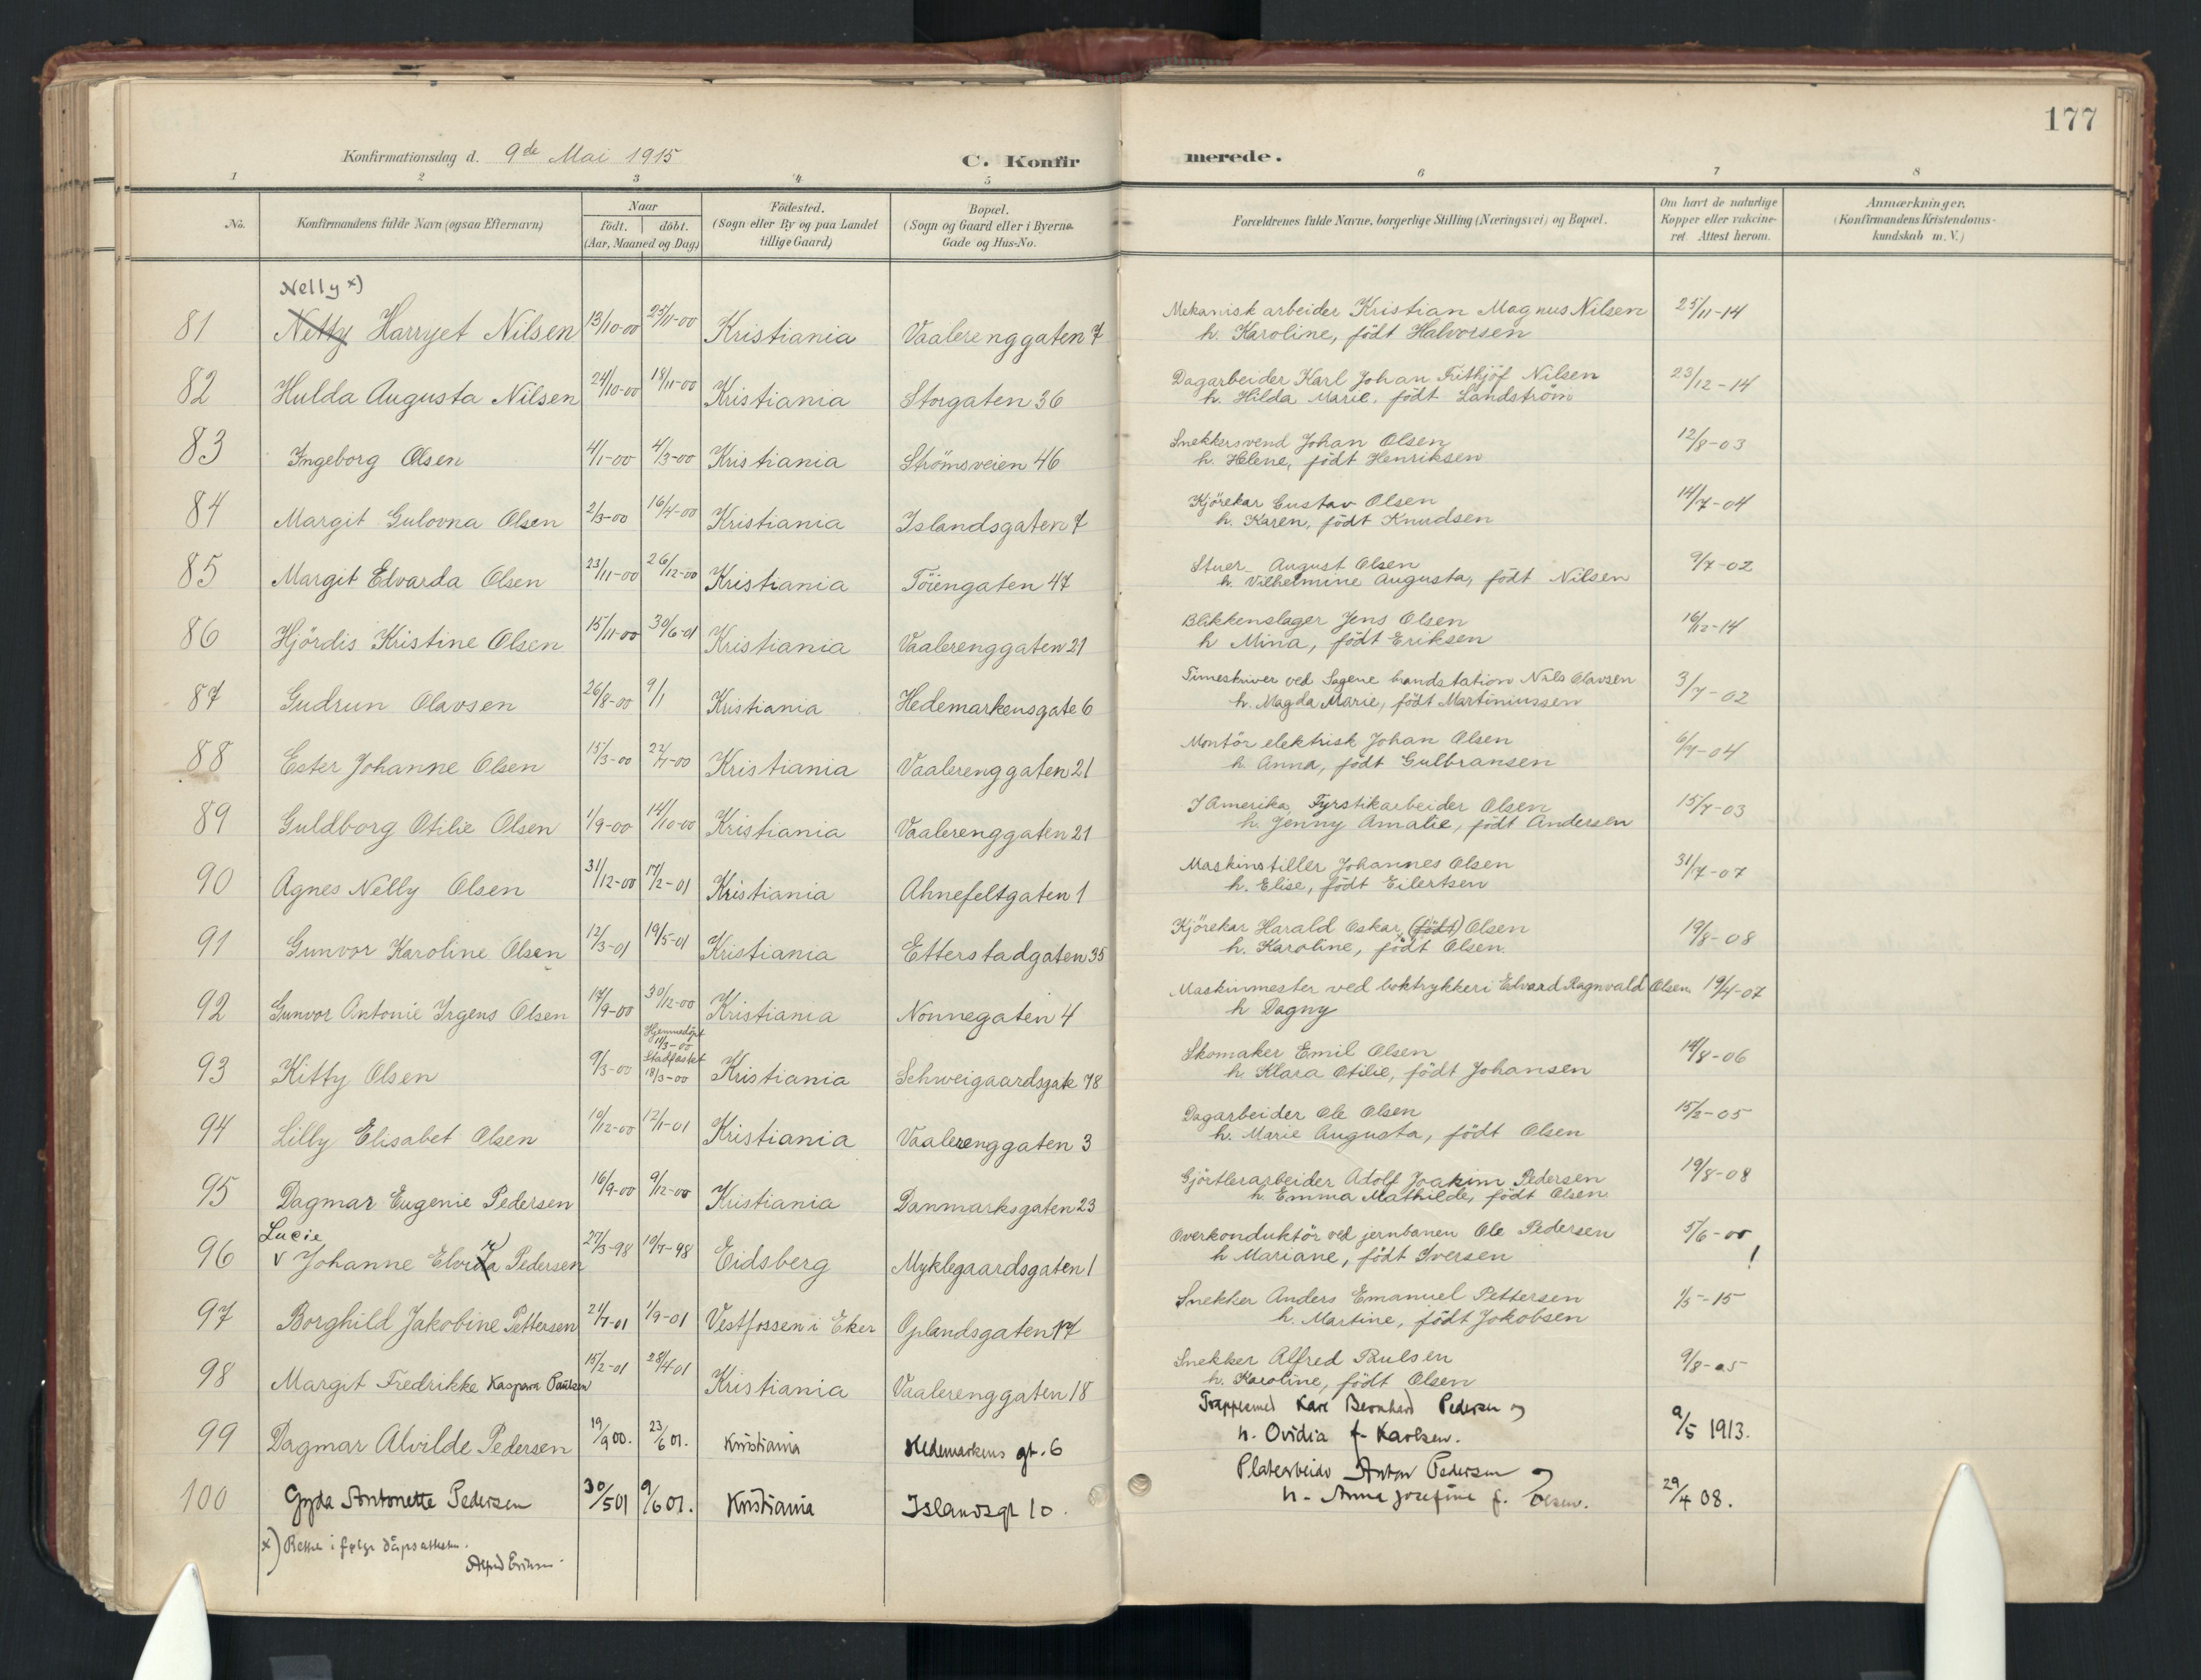 177
Konfirmationsdag d. 9de Mai 1915 C. Konfirmerede.
1 2 3 4 5 6 7 8
No. Konfirmandens fulde Navn (ogsaa Efternavn) Naar født. døbt. (Aar, Maaned og Dag) Fødested. (Sogn eller By og paa Landet tillige Gaard) Bopæl. (Sogn og Gaard eller i Byerne Gade og Hus-No. Forældrenes fulde Navne, borgerlige Stilling (Næringsvei) og Bopæl. Om havt de naturlige Kopper eller vakcineret. Attest herom. Anmærkninger. (Konfirmandens Kristendomskundskab m. V.)
Nelly x)
81 Netty Harryet Nilsen 13/10-00 25/11-00 Kristiania Vaalerenggaten 7 Mekanisk arbeider Kristian Magnus Nilsen 25/11-14
h. Karoline, födt Halvorsen
82 Hulda Augusta Nilsen 24/10-00 18/11-00 Kristiania Storgaten 36 Dagarbeider Karl Johan Frithjöf Nilsen 23/12-14
h. Hilda Marie, födt Landström
83 Ingeborg Olsen 4/1-00 4/3-00 Kristiania Strömsveien 46 Snekkersvend Johan Olsen 12/8-03
h. Helene, födt Henriksen
84 Margit Gulovna Olsen 2/3-00 16/4-00 Kristiania Islandsgaten 7 Kjörekar Gustav Olsen 14/7-04
h. Karen, födt Knudsen
85 Margit Edvarda Olsen 23/11-00 26/12-00 Kristiania Töiengaten 47 Stuer August Olsen 9/7-02
h. Vilhelmine Augusta, födt Nilsen
86 Hjördis Kristine Olsen 15/11-00 30/6-01 Kristiania Vaalerenggaten 21 Blikkenslager Jens Olsen 16/12-14
h Mina, födt Eriksen
87 Gudrun Olavsen 26/8-00 9/1 Kristiania Hedemarkensgate 6 Timeskriver ved Sagene brandstation Nils Olavsen 3/7-02
h. Magda Marie, födt Martiniussen
88 Ester Johanne Olsen 15/3-00 22/7-00 Kristiania Vaalerenggaten 21 Montör elektrisk Johan Olsen 6/7-04
h. Anna, födt Gulbransen
89 Guldborg Otilie Olsen 1/9-00 14/10-00 Kristiania Vaalerenggaten 21 I Amerika, Fyrstikarbeider Olsen 15/7-03
h. Jenny Amalie, födt Andersen
90 Agnes Nelly Olsen 31/12-00 17/2-01 Kristiania Ahnefeltgaten 1 Maskinstiller Johannes Olsen 31/7-07
h. Elise, födt Eilertsen
91 Gunvor Karoline Olsen 12/3-01 19/5-01 Kristiania Etterstadgaten 35 Kjörekar Harald Oskar (födt) Olsen 19/8-08
h. Karoline, födt Olsen.
92 Gunvor Antonie Irgens Olsen 17/9-00 30/12-00 Kristiania Nonnegaten 4 Maskinmester ved boktrykkeri Edvard Ragnvald Olsen 19/4-07
h Dagny
Hjemmedöpt 11/3-00
93 Kitty Olsen 9/3-00 Stadfæstet 18/3-00 Kristiania Schweigaardsgate 78 Skomaker Emil Olsen 14/8-06
h. Klara Otilie, födt Johansen
94 Lilly Elisabet Olsen 10/12-00 12/1-01 Kristiania Vaalerenggaten 3 Dagarbeider Ole Olsen 15/2-05
h. Marie Augusta, födt Olsen
95 Dagmar Eugenie Pedersen 16/9-00 9/12-00 Kristiania Danmarksgaten 23 Gjörtlerarbeider Adolf Joakim Pedersen 19/8-08
h. Emma Mathilde, födt Olsen
Lucie
96 v Johanne Elvida Pedersen 27/3-98 10/7-98 Eidsberg Myklegaardsgaten 1 Overkonduktör ved jernbanen Ole Pedersen 5/6-00 !
h Mariane, födt Iversen
97 Borghild Jakobine Pettersen 21/7-01 1/9-01 Vestfossen i Eker Oplandsgaten 17 Snekker Anders Emanuel Pettersen 1/5-15
h. Martine, födt Jokobsen
98 Margit Fredrikke Kaspara Paulsen 15/2-01 28/4-01 Kristiania Vaalerenggaten 18 Snekker Alfred Paulsen 9/8-05
h. Karoline, födt Olsen
99 Dagmar Alvilde Pedersen 19/9 00. 23/6 01. Kristiania Hedemarkens gt. 6 Karl Bernhard Pedersen og 9/5 1913.
h. Ovidia f. Karlsen.
100 Gyda Antonette Pedersen 30/5 01 9/6 01. Kristiania Islandsgt 10. Platearbeider Anton Pedersen og 29/4 08.
h. Anna Josefine f. Olsen.
x) Rettet i følge dåpsattesten.
Alfred Eriksen